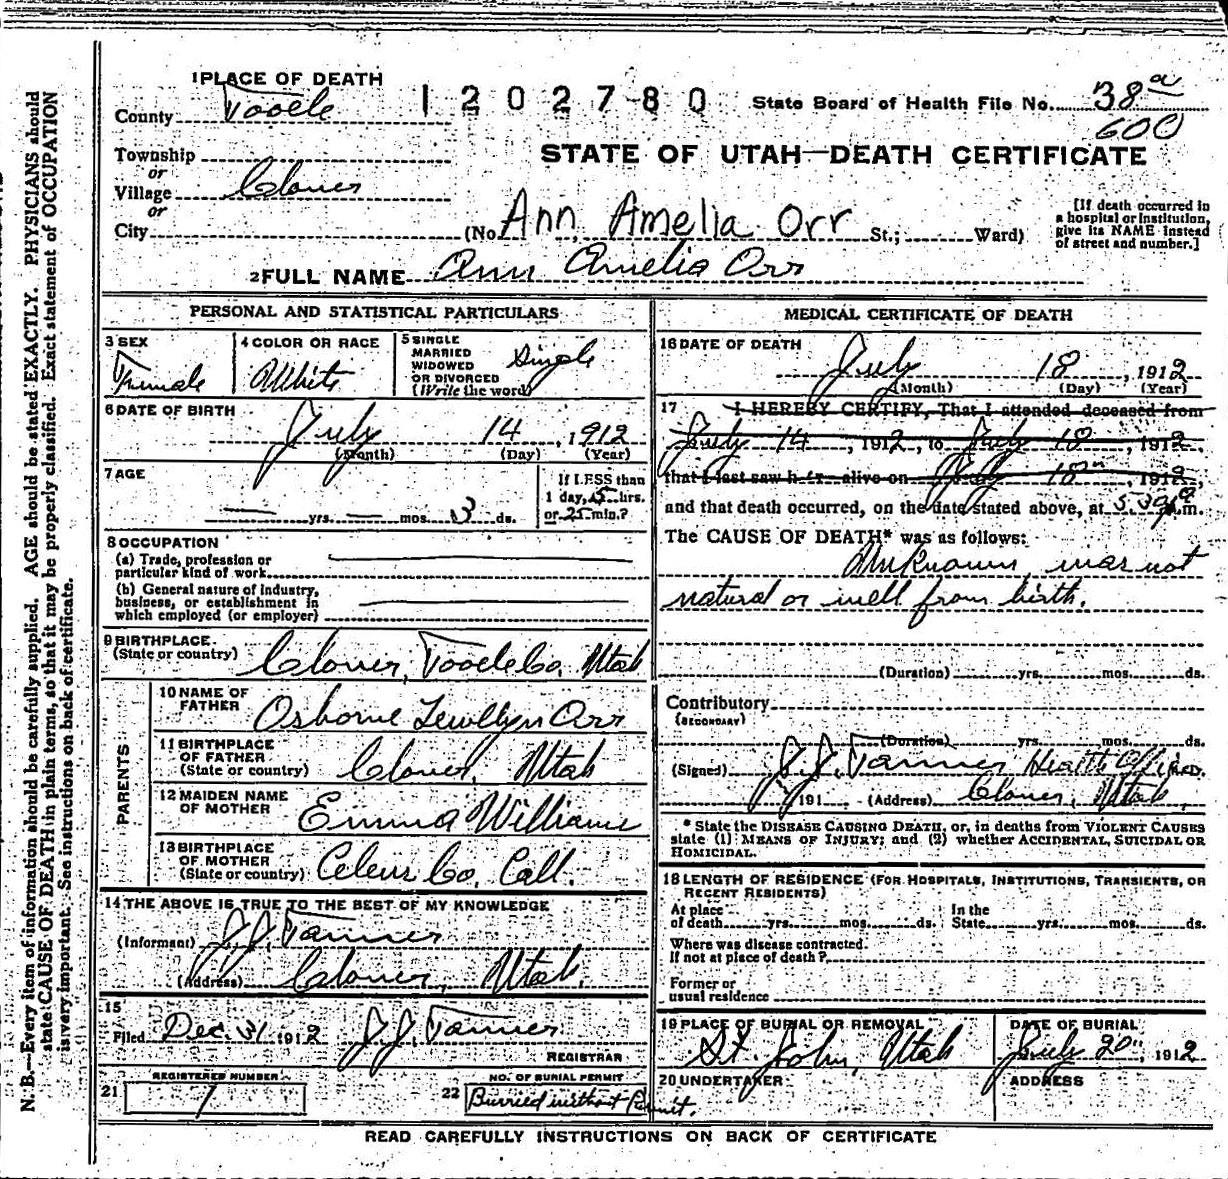 1 PLACE OF DEATH
County Tooele
1202780
State Board of Health File No. 38 a
600
Township
or
Village Clover
or
City
STATE OF UTAH—DEATH CERTIFICATE
(No. Ann Amelia Orr St.; Ward)
[If death occurred in a hospital or institution, give its NAME instead of street and number.]
2 FULL NAME Ann Amelia Orr
PERSONAL AND STATISTICAL PARTICULARS
3 SEX Female
4 COLOR OR RACE White
5 SINGLE MARRIED WIDOWED OR DIVORCED (Write the word) Single
6 DATE OF BIRTH
July 14, 1912
(Month) (Day) (Year)
7 AGE
— yrs. — mos. 3 ds.
If LESS than 1 day, 5 hrs. or 25 min.?
8 OCCUPATION
(a) Trade, profession or particular kind of work
(b) General nature of industry, business, or establishment in which employed (or employer)
9 BIRTHPLACE
(State or country) Clover, Tooele Co, Utah
PARENTS
10 NAME OF FATHER Osborne Lewllyn Orr
11 BIRTHPLACE OF FATHER (State or country) Clover, Utah
12 MAIDEN NAME OF MOTHER Emma Williams
13 BIRTHPLACE OF MOTHER (State or country) Co, Call.
14 THE ABOVE IS TRUE TO THE BEST OF MY KNOWLEDGE
(Informant) J. J. Tanner
(Address) Clover, Utah.
15
Filed Dec. 31 1912 J. J. Tanner
REGISTRAR
21 REGISTERED NUMBER 7
22 NO. OF BURIAL PERMIT Burried without Permit.
MEDICAL CERTIFICATE OF DEATH
16 DATE OF DEATH
July 18, 1912
(Month) (Day) (Year)
17 I HEREBY CERTIFY, That I attended deceased from
July 14, 1912, to July 18, 1912,
that I last saw h er alive on July 18th, 1912,
and that death occurred, on the date stated above, at 5.30 a m.
The CAUSE OF DEATH* was as follows:
Unknown, was not
natural or well from birth.
(Duration) yrs. mos. ds.
Contributory
(SECONDARY)
(Duration) yrs. mos. ds.
(Signed) J. J. Tanner Health Officer M.D.
191 (Address) Clover, Utah,
* State the DISEASE CAUSING DEATH, or, in deaths from VIOLENT CAUSES
state (1) MEANS OF INJURY; and (2) whether ACCIDENTAL, SUICIDAL OR
HOMICIDAL.
18 LENGTH OF RESIDENCE (FOR HOSPITALS, INSTITUTIONS, TRANSIENTS, OR
RECENT RESIDENTS)
At place of death yrs. mos. ds. In the State yrs. mos. ds.
Where was disease contracted
If not at place of death?
Former or
usual residence
19 PLACE OF BURIAL OR REMOVAL
St. John, Utah
DATE OF BURIAL
July 20", 1912
20 UNDERTAKER
ADDRESS
READ CAREFULLY INSTRUCTIONS ON BACK OF CERTIFICATE
N. B.—Every item of information should be carefully supplied. AGE should be stated EXACTLY. PHYSICIANS should
state CAUSE OF DEATH in plain terms, so that it may be properly classified. Exact statement of OCCUPATION
is very important. See instructions on back of certificate.